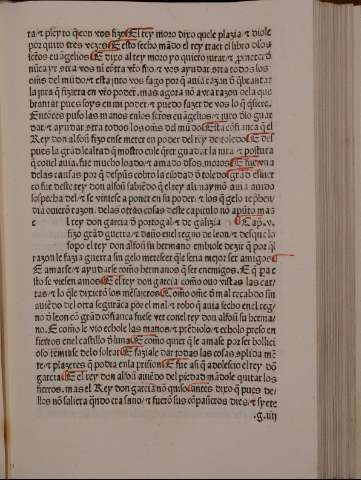 ra & pleyto q̃ con vos fizo E el rey moro dixo que le plazia & diole
por quito tres vezes E esto fecho mãdo el rey traer el libro dlos
euãgelios E dixo al rey moro yo quiero jurar &
nũca yr a vos ni cõtra vr̃o fijo & vos ayudar cõtra todos los
oñs del mũdo E esta jura vos fago por q̃ auia razon d̃ q̃brantar
la jura q̃ fiziera en vr̃o poder. mas agora nõ avra razon de la que
brantar pues soys en mi poder & puedo fazer de vos lo q̃ q̃siere.
Entõces puso las manos en los euãgelios & juro dlo guar
dar & ayudar cõtra todos los oñs del mũdo E esta cõfiança q̃ el
Rey don alfõso fizo en se meter en poder del rey de toledo E des
pues la grã lealtad q̃ mostro en le q̃rer guardar la jura & postura
q̃ con el auia. fue mucho loado & amado dlos moros E fue vna
delas causas por q̃ despues cobro la cibdad d̃ toledo
co fue deste rey don alfõso sabiẽdo q̃ el rey alimaymõ auia auido
sospecha del. & se viniese a poner en su poder. & los q̃ gelo
razon. de las otras cosas deste capitulo nõ apũto mas
e l rey don garcia d̃ portogal & de galizia Cap. v.
fizo grãd guerra & daño en el regno de leon & desque lo
sopo el rey don alfõso su hermano embiole dezir q̃ por q̃l
razon le fazia guerra sin gelo mereser que seria mejor ser amigos
E amarse & ayudarse como hermanos q̃ ser enemigos. E q̃ pa e
sto se viesen amos E el rey don garcia como ouo vistas las car
tas & lo q̃le dixierõ los mẽsajeros Como oñe d̃ mal recabdo sin
auiẽto del otra segurãça por el mal & robo q̃ auia fecho en el reg
no d̃ leon cõ grãd cofiança fuese ver con el rey don alfõso su herma
no. E como le vio echole las manos & prẽdiolo & echolo preso en
fierros en el castillo d̃ luna E como quier q̃ le amase por ser bollici
oso temiose de lo soltar E faziale dar todas las cosas
te & plazeres q̃ podia en la prision E fue asi q̃ adolescio el rey dõ
garcia E el rey don alfõso auiẽdo del piedad mãdole quitar los
fierros. mas el Rey don garcia nõ quiso antes dixo q̃ pues de
llos nõ saliera q̃ndo era sano & fuerõ sus cõpañeros dies & syete
.g.iiij